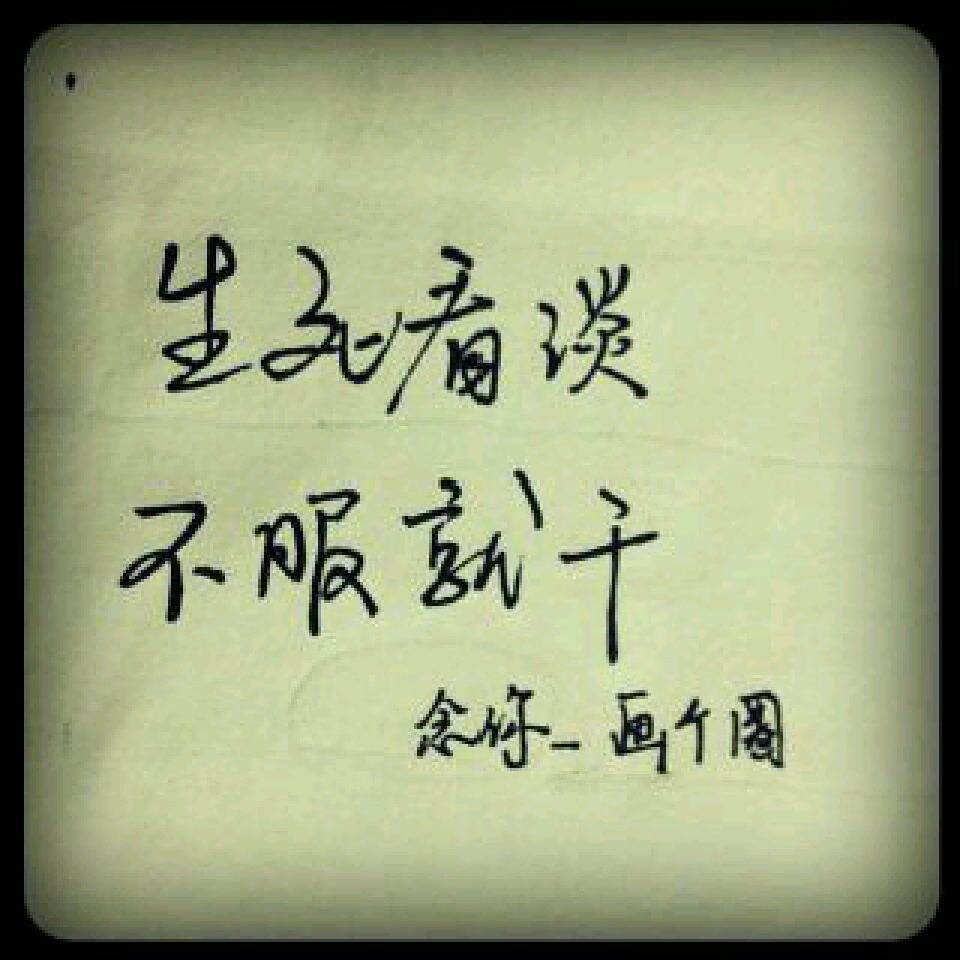 生死看淡
不服就干
念你_画个圈